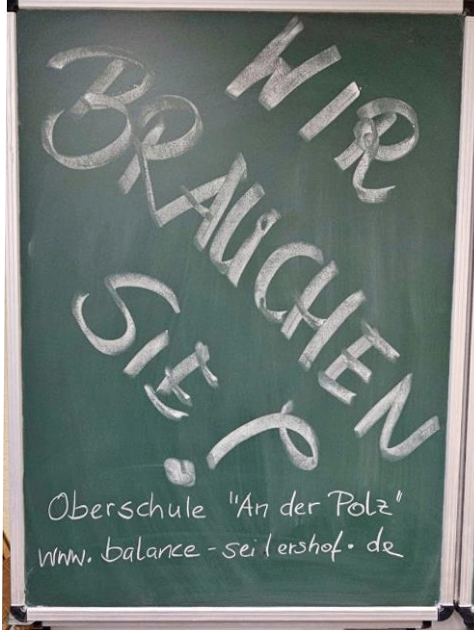 WIR
BRAUCHEN
SIE!
Oberschule "An der Polz"
www.balance-seilershof.de